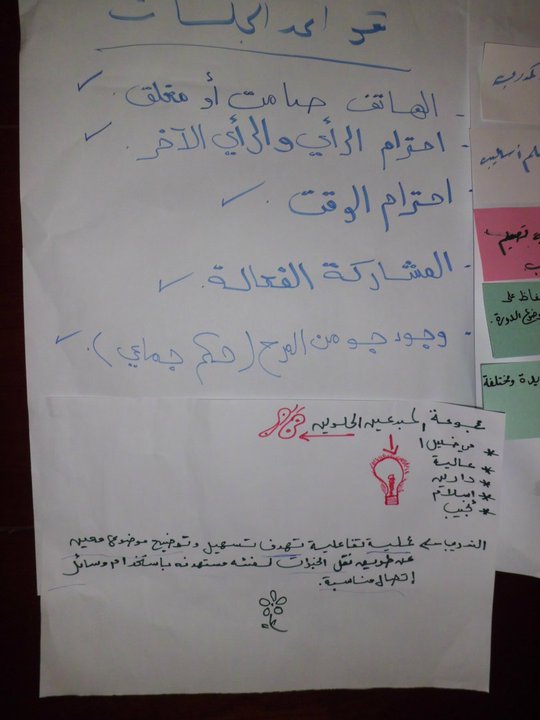 قواعد الجلسات
- الهاتف صامت أو مغلق.
- احترام الرأي والرأي الآخر.
- احترام الوقت.
- المشاركة الفعالة.
- وجود جو من المرح (حكم جماعي).
مجموعة المبدعين الحلوين
* عالية
* دارين
* اسلام
* نجيب
التدريب ← عملية تفاعلية تهدف تسهيل وتوضيح موضوع معين
عن طريق نقل الخبرات لفئة مستهدفة باستخدام وسائل
إتصال مناسبة.
الدورة.
يدة ومختلفة